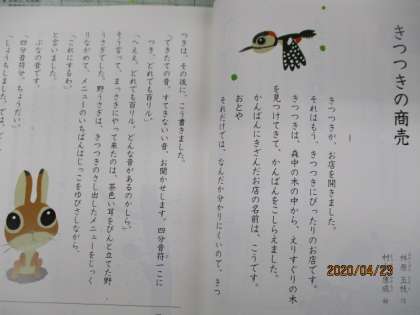 きつつきの商売
林原 玉枝 作
村
きつつきが、お店を開きました。
それはもう、きつつきにぴったりのお店です。
きつつきは、森中の木の中から、えりすぐりの木
を見つけてきて、かんばんをこしらえました。
かんばんにきざんだお店の名前は、こうです。
おとや
それだけでは、なんだか分かりにくいので、きつ
つきは、その後に、こう書きました。
「できたての音、すてきないい音、お聞かせします。四分音符一こに
つき、どれでも百リル。」
「へええ。どれでも百リル。どんな音があるのかしら。」
そう言って、まっさきにやって来たのは、茶色い耳をぴんと立てた野
うさぎでした。野うさぎは、きつつきのさし出したメニューをじっく
りながめて、メニューのいちばんはじっこをゆびさしながら、
「これにするわ。」
と言いました。
ぶなの音です。
「四分音符分、ちょうだい。」
「しょうちしました。では、
2020/04/23